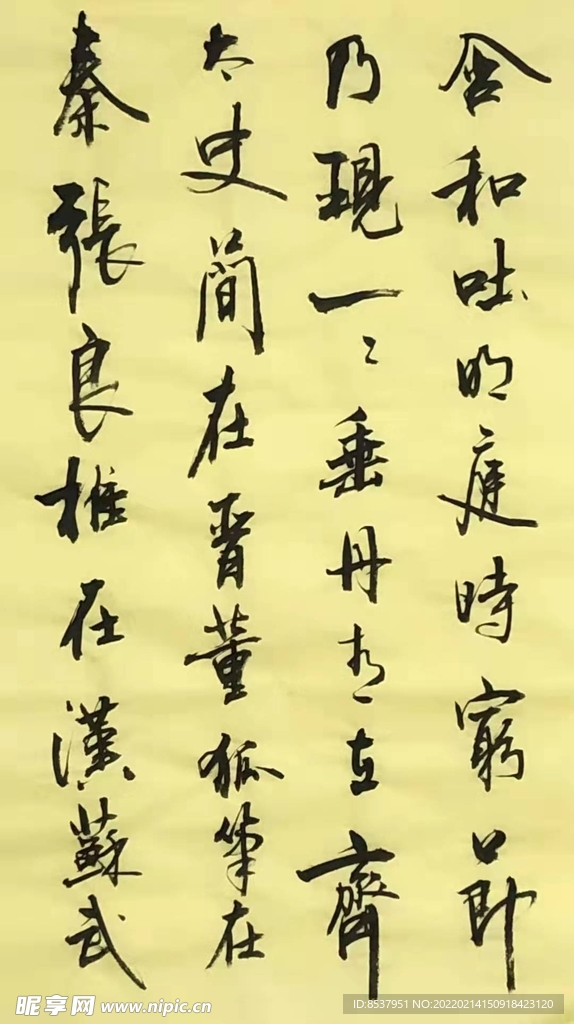 含和吐明庭時窮節
乃現一々垂丹青在齊
太史簡在晉董狐筆在
秦張良椎在漢蘇武
昵享网 www.nipic.cn
ID:8537951 NO:20220214150918423120